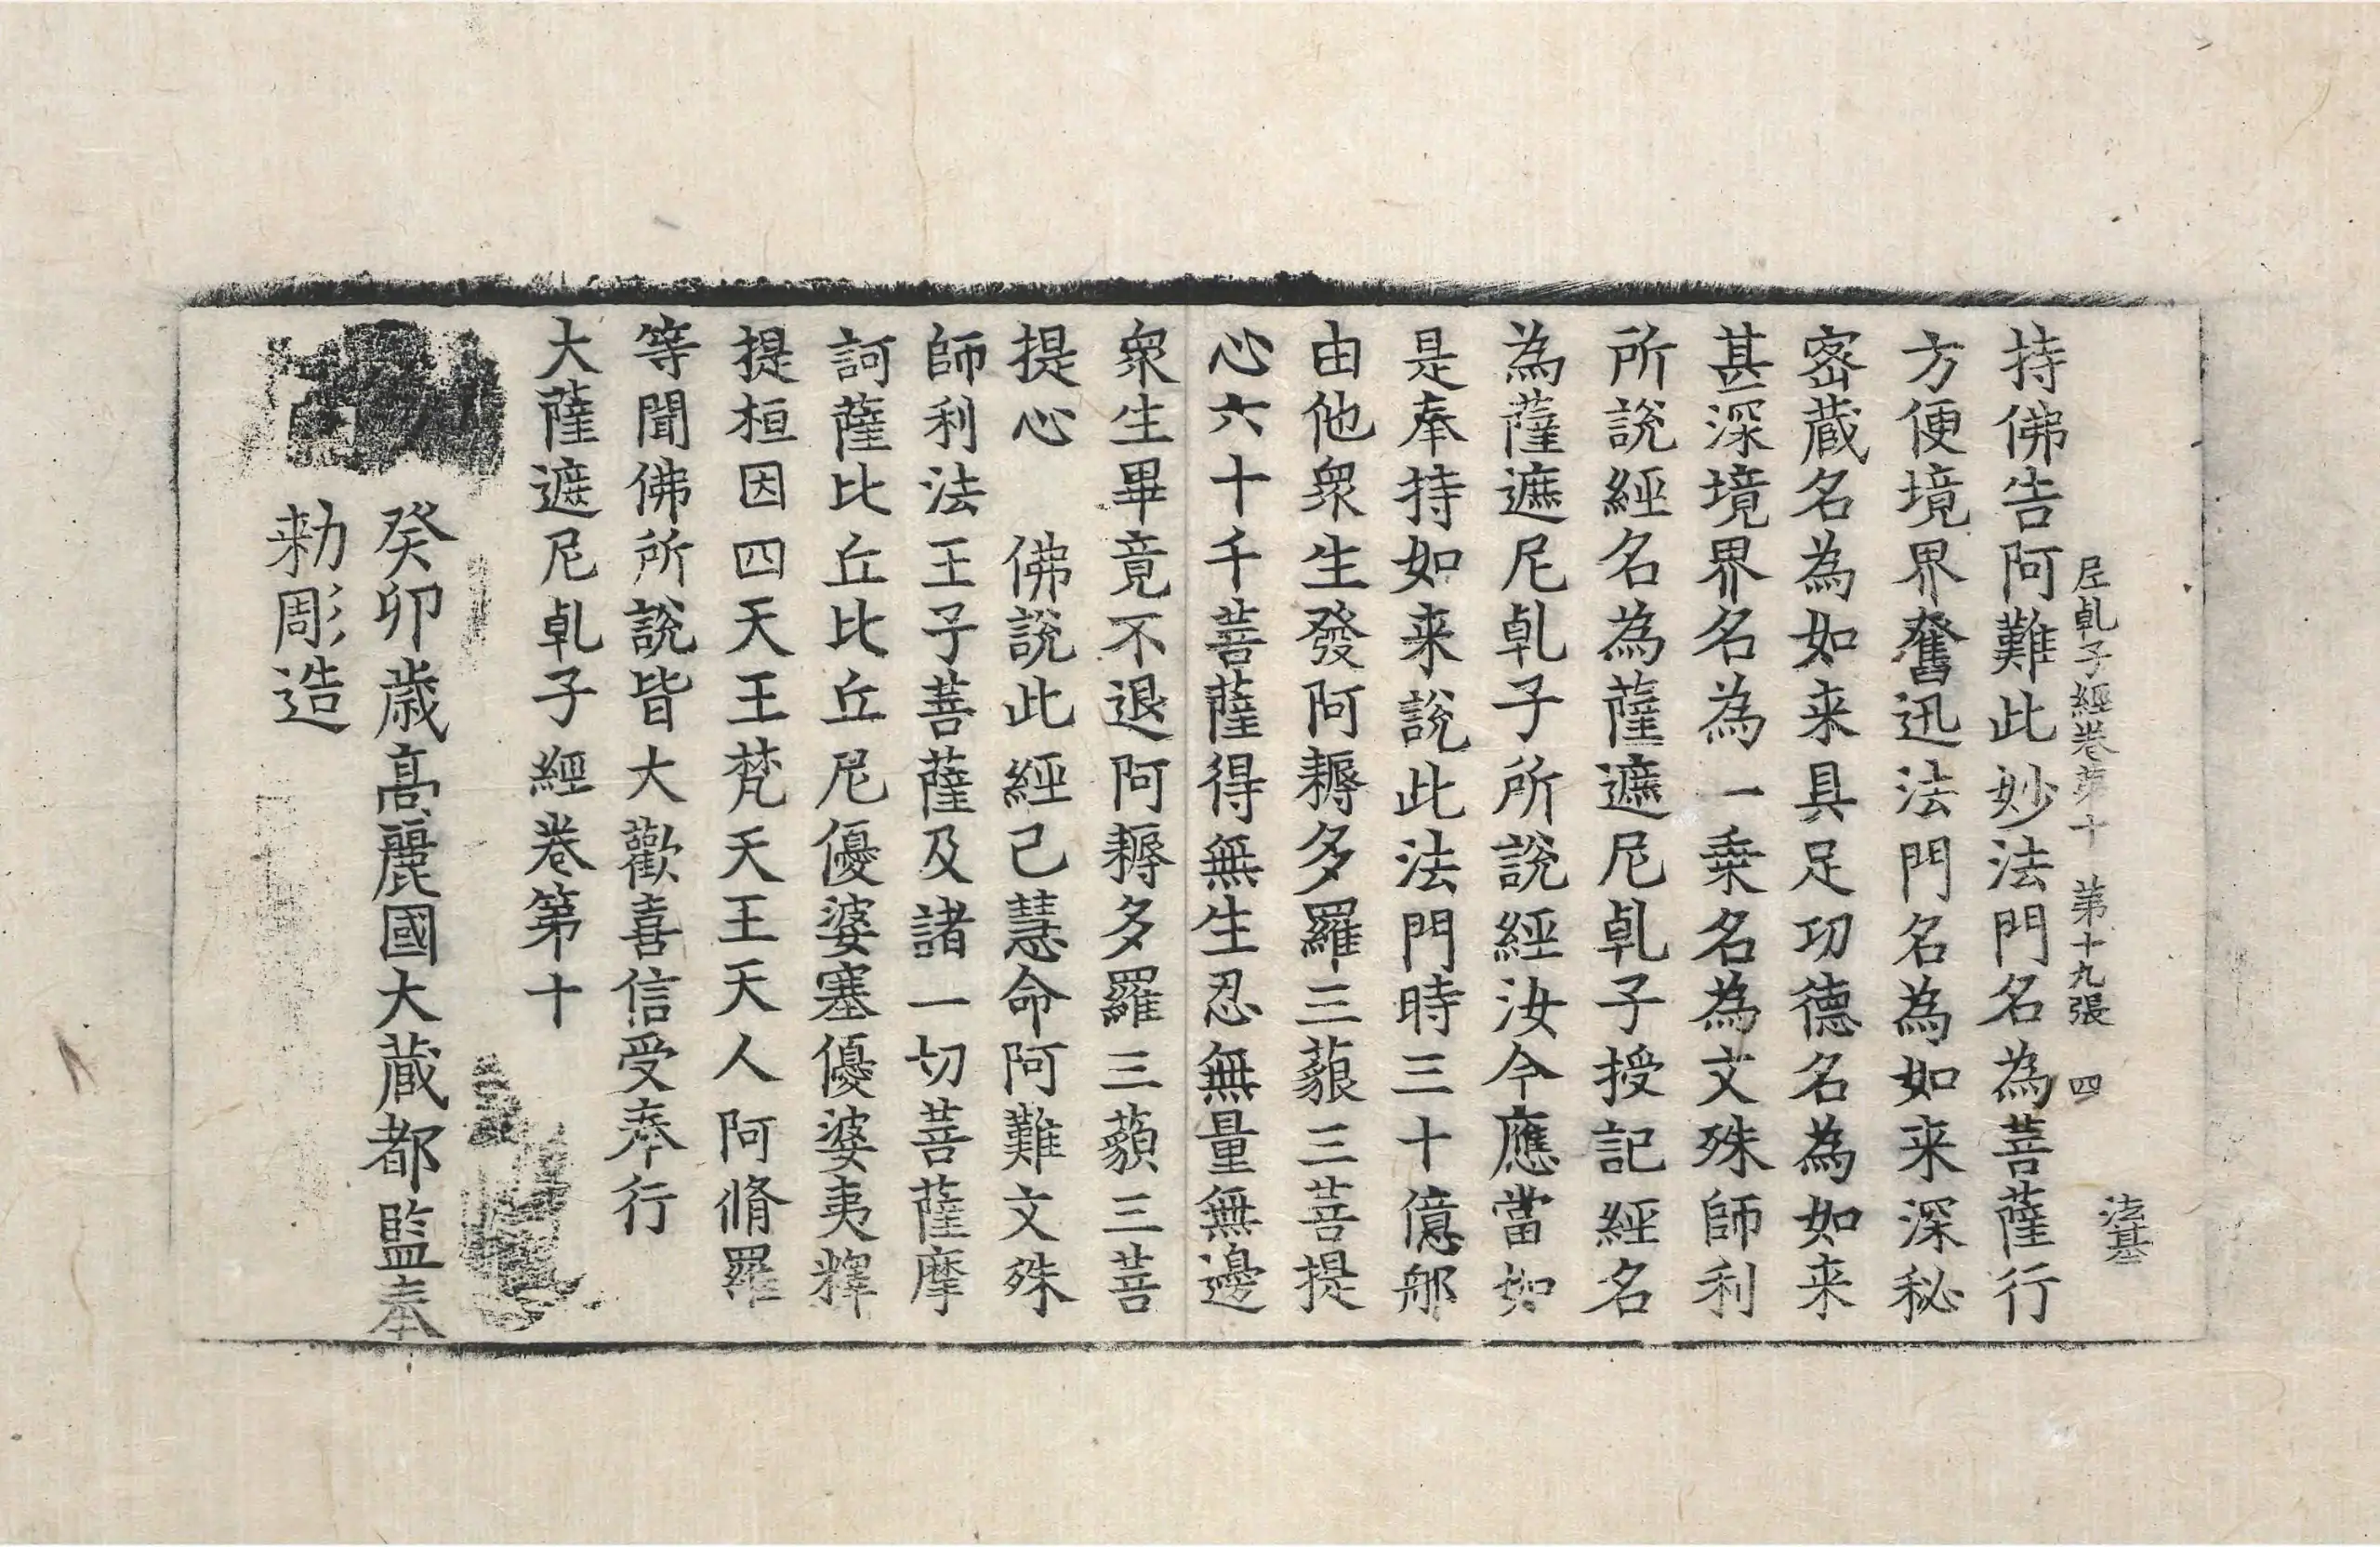 尼乹子經卷第十　第十九張　四　法基
持佛告阿難此妙法門名為菩薩行
方便境界奮迅法門名為如来深秘
宻蔵名為如来具足功德名為如来
甚深境界名為一乗名為文殊師利
所說經名為薩遮尼乹子授記經名
為薩遮尼乹子所說經汝今應當如
是奉持如来說此法門時三十億那
由他衆生發阿耨多羅三藐三菩提
心六十千菩薩得無生忍無量無邊
衆生畢竟不退阿耨多羅三藐三菩
提心　佛說此經已慧命阿難文殊
師利法王子菩薩及諸一切菩薩摩
訶薩比丘比丘尼優婆塞優婆夷釋
提桓因四天王梵天王天人阿脩羅
等聞佛所說皆大歡喜信受奉行
大薩遮尼乹子經卷第十
癸卯歳高麗國大蔵都監奉
勑彫造